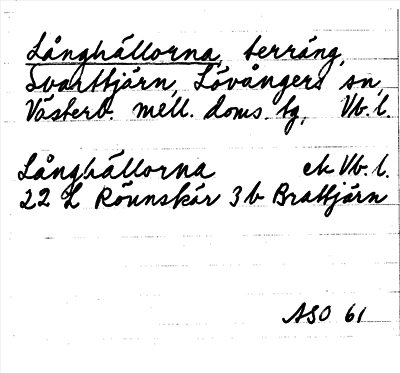 Långhällorna, terräng,
Svarttjärn, Lövångers sn,
Västerb. mell. doms. tg, Vb. l.
Långhällorna ek Vb. l.
22 L Rönnskär 3 b Brattjärn
ASO 61